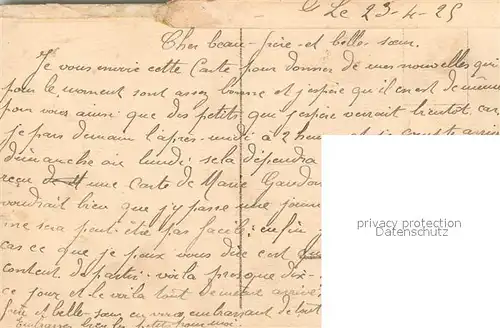 Le 23-4-25
Cher beau-frère et belle sœur.
Je vous envoie cette Carte pour donner de mes nouvelles qui
pour le moment sont assez bonne et j'espère qu'il en est de même
pour vous ainsi que des petits que j'espère verrait bientot. car
je pars demain l'après-midi a 2 heu
dimanche ou lundi; sela dépendra
reçu une Carte de Marie
voudrait bien que j'y passe une journ
me sera peut-être pas facil; enfin
cas ce que je peux vous dire c'est
content de partir. voila presque dix-
ce jour et le voila tout de même arrivé
frère et belle-sœur en vous embrassant de tout
Embrasser bien les petits pour moi.
privacy protection
www.ansichtskarten-center.de